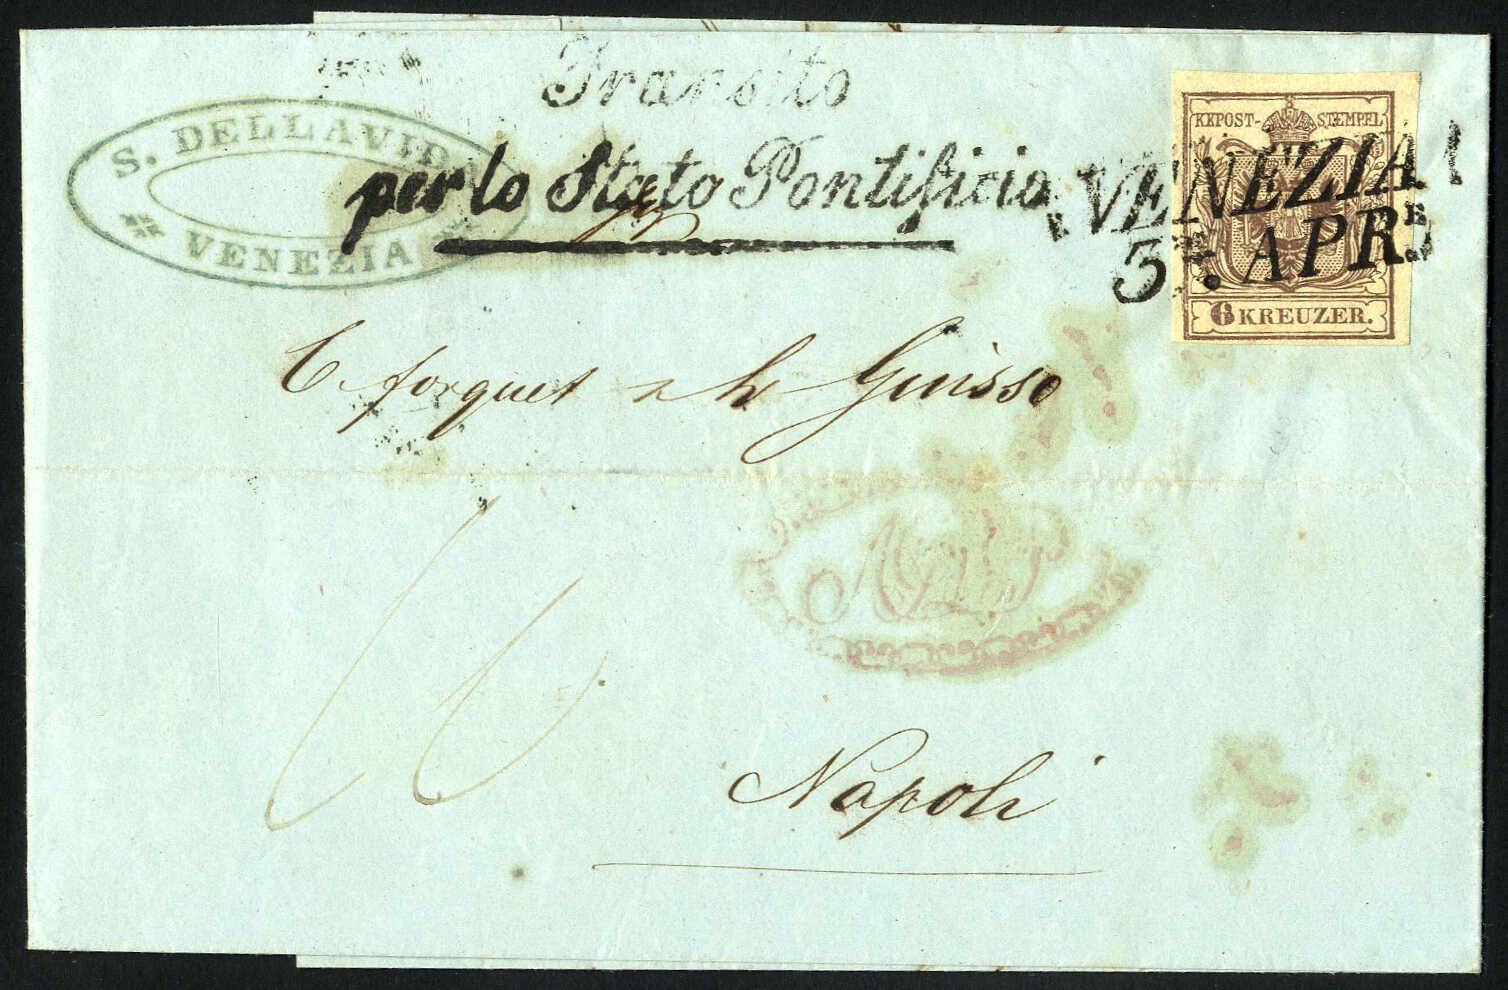 Transito
per lo Stato Pontificio
S. DELLAVIDA
VENEZIA
KKPOST-STEMPEL
6 KREUZER.
VENEZIA
3. APR.
C Forquet Guisso
Napoli